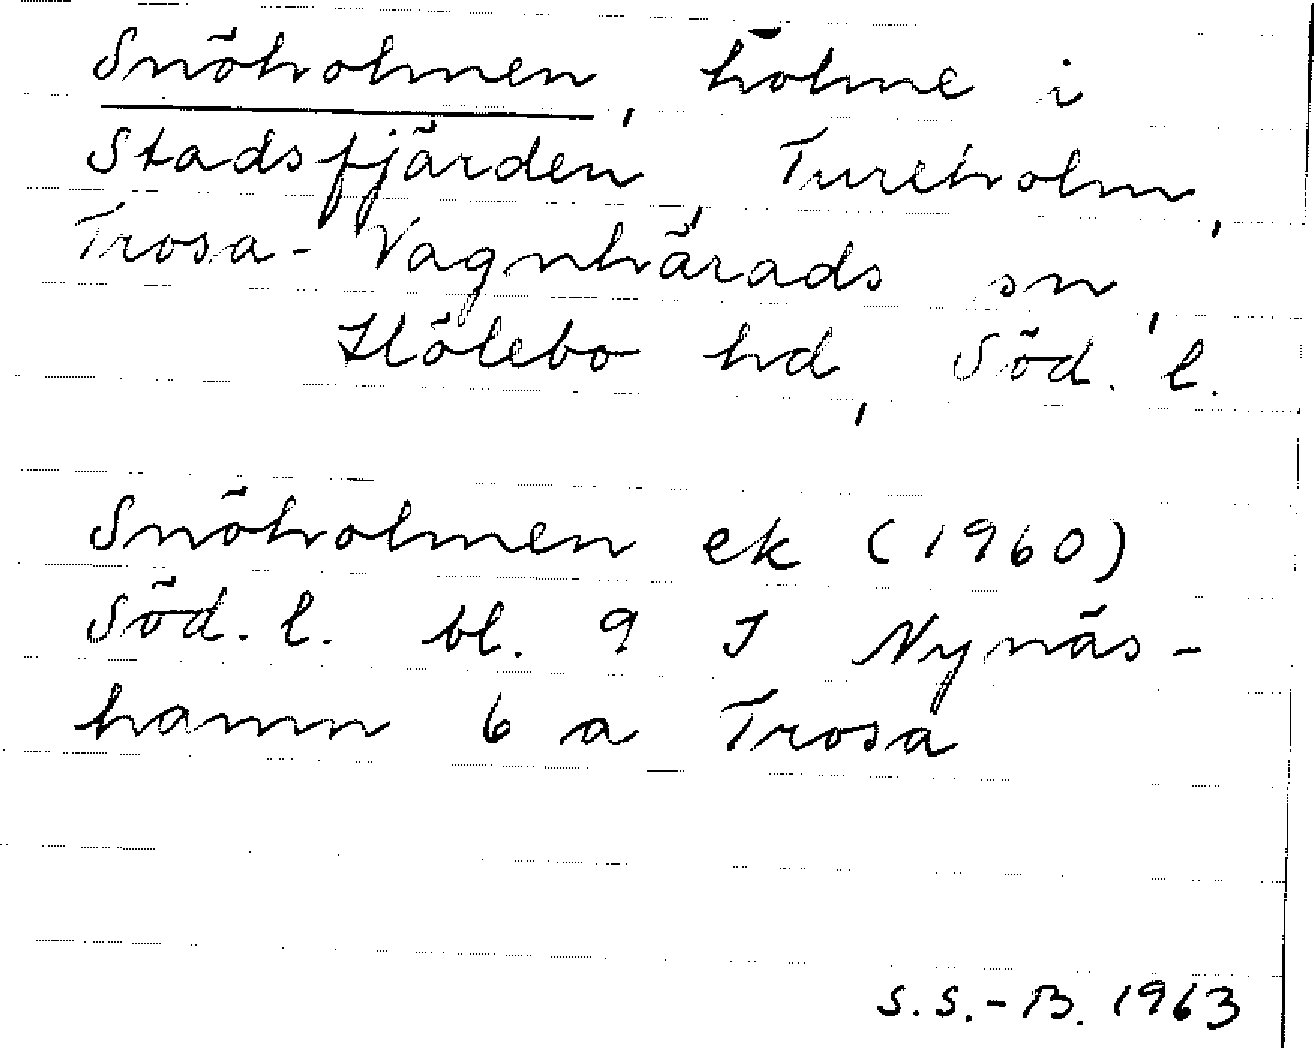 Snöholmen, holme i
Stadsfjärden, Tureholm,
Trosa-Vagnhärads sn,
Hölebo hd, Söd. l.
Snöholmen ek (1960)
Söd. l. bl. 9 J Nynäs-
hamn 6 a Trosa
S.S.-B. 1963